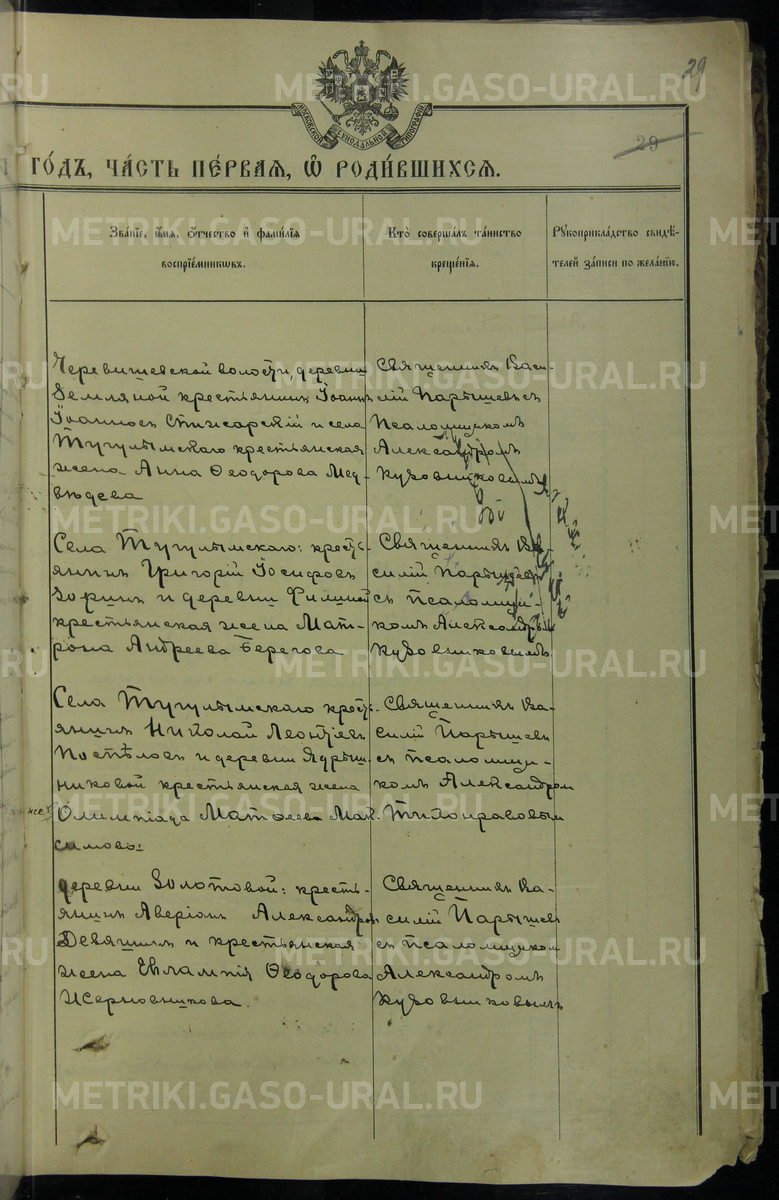 29
29
МОСКОВСКОЙ СУНОДАЛЬНОЙ ТИПОГРАФІИ
ГО́ДЪ, ЧА́СТЬ ПЕ́РВАЯ, Ѽ РОДИ́ВШИХСЯ.
Зва́нїе, и҆́мя, ѻ҆́тчество и҆ фами́лїя
воспрїе́мникѡвъ.
Кто̀ соверша́лъ та́инство
креще́нїя.
Рꙋкоприкла́дство свидѣ́-
телей за́писи по жела́нїю.
Черевишевской волости, деревни
Земляной крестьянинъ Іоаннъ
Іоанновъ и села
Тугулымскаго крестьянская
жена Анна Ѳеодорова Мед-
вѣдева
Священникъ Васи-
лій Парышевъ съ
Псаломщикомъ
Александромъ
Кузовниковымъ
Села Тугулымскаго: кресть-
янинъ Григорій Іосифовъ
Зоринъ и деревни
крестьянская жена Мат-
рона Андреева Берегова
Священникъ Ва-
силій Парышевъ
съ псаломщи-
комъ Александромъ
Кузовниковымъ
Села Тугулымскаго кресть-
янинъ Николай Леонтіевъ
Поспѣловъ и деревни Ядрыш-
никовой крестьянская жена
Олимпіада Матѳеева Мак-
симова:
Священникъ Ва-
силій Парышевъ
съ псаломщи-
комъ Александром
Тихонравовым
деревни Золотовой: кресть-
янинъ Аверіанъ Александров
Девяшинъ и крестьянская
жена Евлампія Ѳеодорова
Жерновникова.
Священникъ Ва-
силій Парышевъ
съ псаломщиком
Александромъ
Кузовниковымъ
METRIKI.GASO-URAL.RU